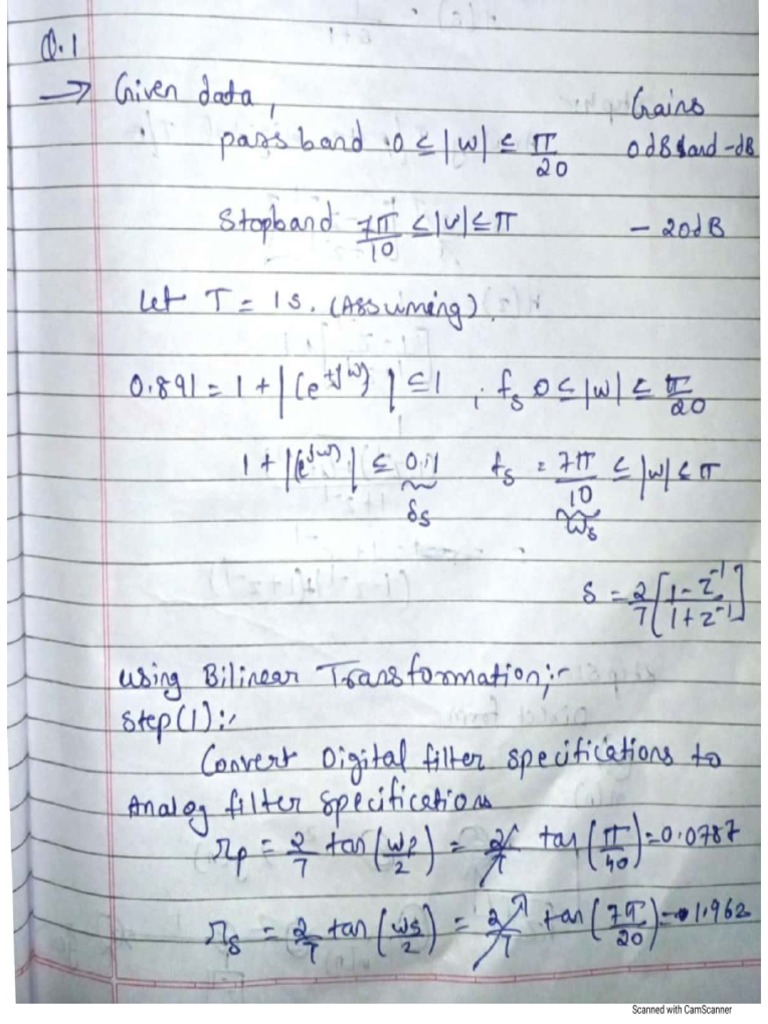 Q.1
→ Given data, Gains
pass band 0 ≤ |w| ≤ π/20 0dB and -dB
Stopband 7π/10 ≤ |w| ≤ π - 20dB
Let T = 1s. (Assuming)
0.891 = 1 + |(e^{+jw}) | ≤ 1 , fs 0 ≤ |w| ≤ π/20
1 + |(e^{jw})| ≤ 0.1 fs = 7π/10 ≤ |w| ≤ π
δs ws
s = 2/T [1 - z^-1 / 1 + z^-1]
using Bilinear Transformation;-
Step(1):-
Convert Digital filter specifications to
Analog filter specifications
Ωp = 2/T tan(wp/2) = 2/T tan(π/40) = 0.0787
Ωs = 2/T tan(ws/2) = 2/T tan(7π/20) = 1.962
Scanned with CamScanner